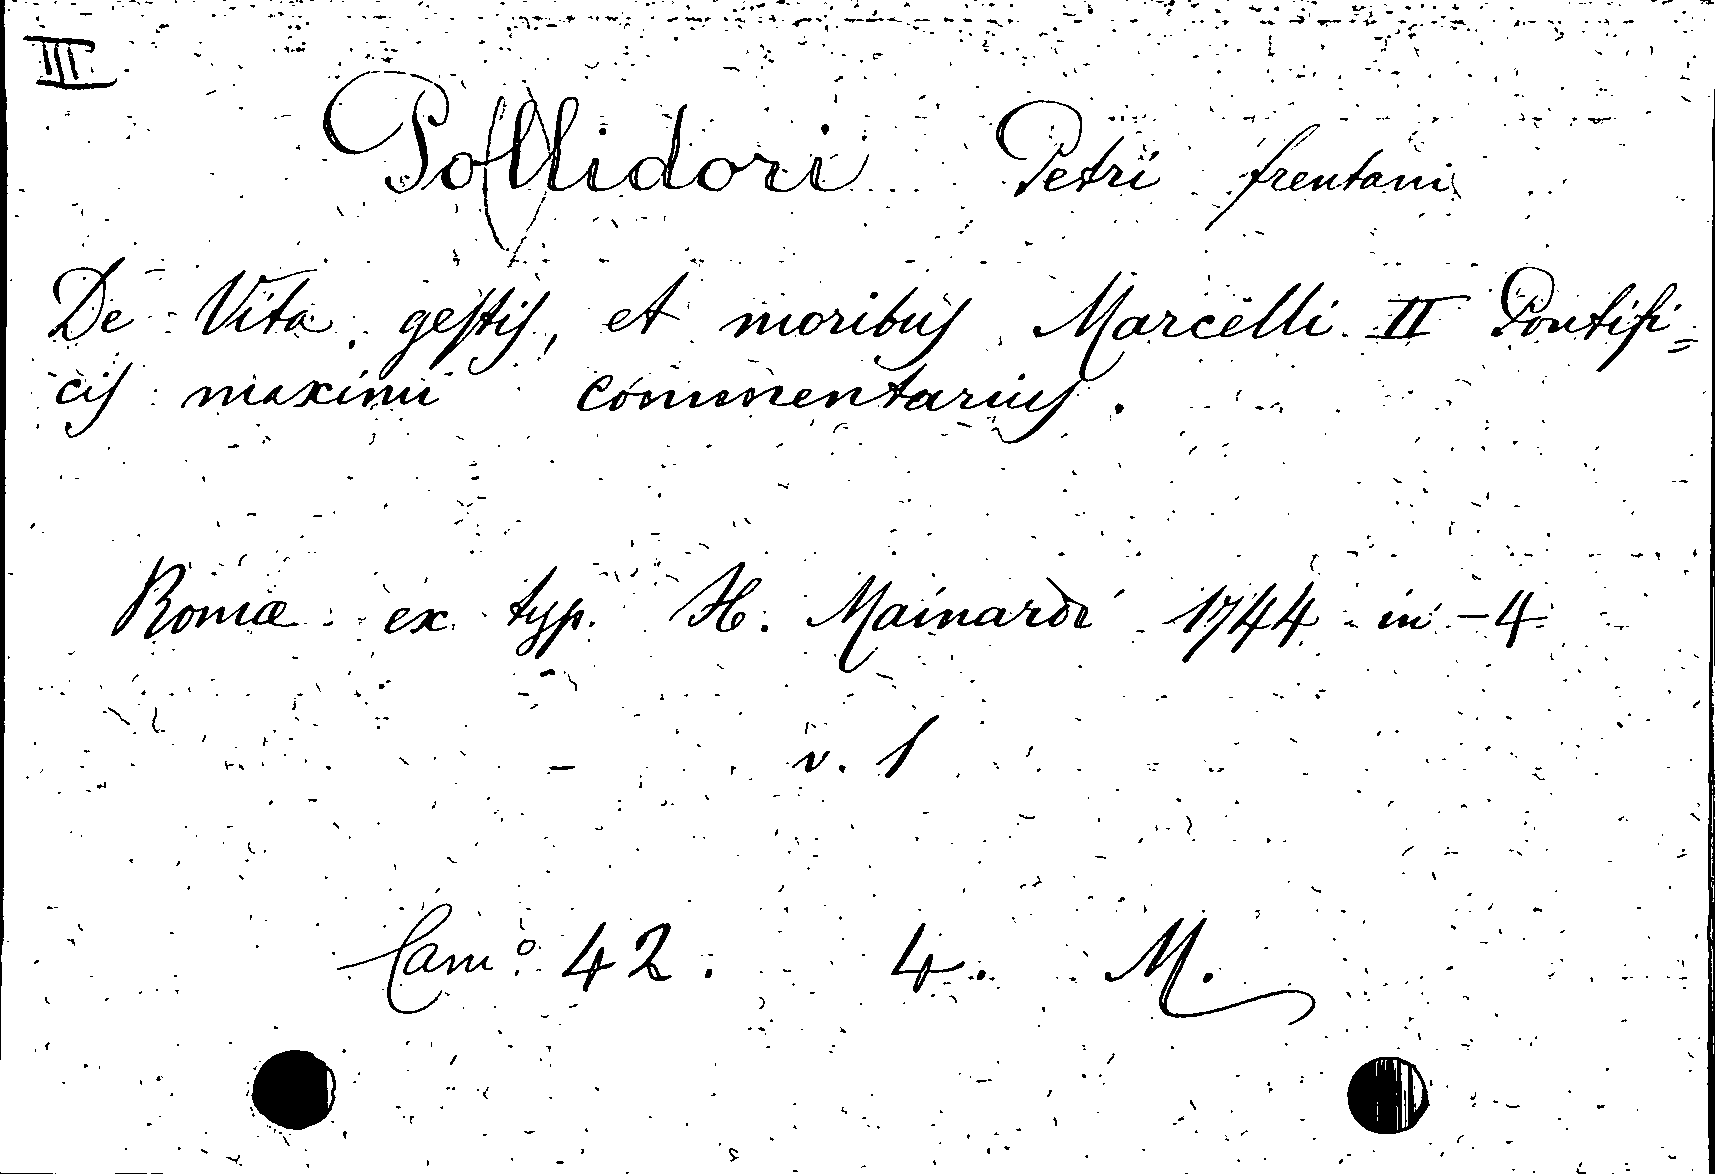 III.
Pollidori Petri frentani
De Vita, gestis, et moribus Marcelli II Pontifi=
cis maximi commentarius.
Romæ ex typ. H. Mainardi 1744 in-4
v. 1
Camº 42. 4. M.